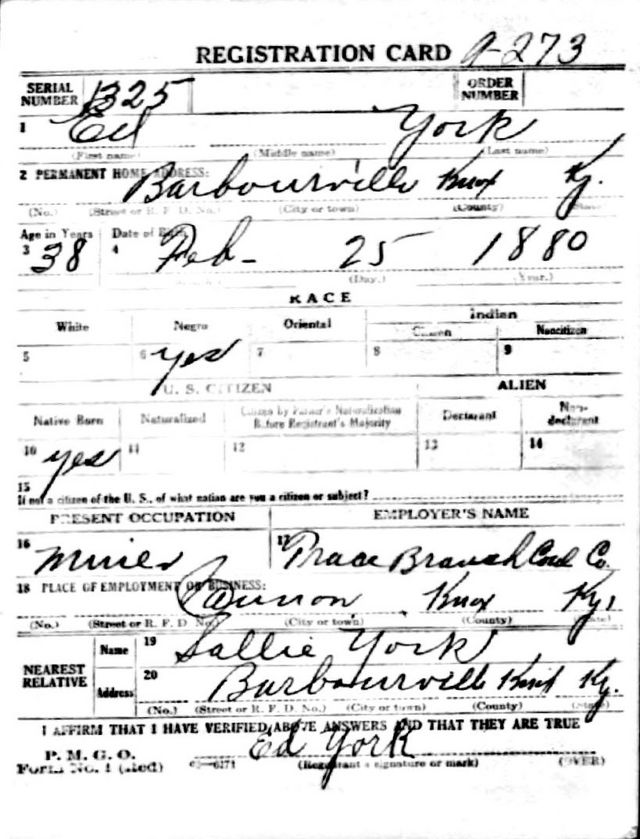 REGISTRATION CARD A-273
SERIAL NUMBER 1325 ORDER NUMBER
1 Ed York
(First name) (Middle name) (Last name)
2 PERMANENT HOME ADDRESS: Barbourville Knox Ky.
(No.) (Street or R. F. D. No.) (City or town) (County) (State)
Age in Years Date of Birth
3 38 4 Feb- 25 1880
(Day.) (Year.)
RACE
White Negro Oriental Indian
Citizen Noncitizen
5 6 yes 7 8 9
U. S. CITIZEN ALIEN
Native Born Naturalized Citizen by Father's Naturalization Before Registrant's Majority Declarant Non-declarant
10 yes 11 12 13 14
15
If not a citizen of the U. S., of what nation are you a citizen or subject?
PRESENT OCCUPATION EMPLOYER'S NAME
16 Miner 17 Trace Branch Coal Co.
18 PLACE OF EMPLOYMENT OR BUSINESS: Cannon Knox Ky.
(No.) (Street or R. F. D. No.) (City or town) (County) (State)
NEAREST RELATIVE Name 19 Sallie York
Address 20 Barbourville Knox Ky.
(No.) (Street or R. F. D. No.) (City or town) (County) (State)
I AFFIRM THAT I HAVE VERIFIED ABOVE ANSWERS AND THAT THEY ARE TRUE
P. M. G. O. Ed York
Form No. 1 (Red) (Registrant's signature or mark) (OVER)